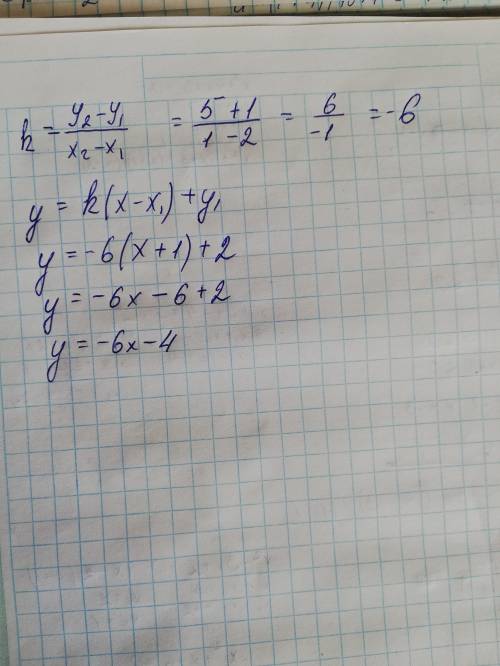 k = y₂-y₁/x₂-x₁ = 5+1/1-2 = 6/-1 = -6
y = k(x-x₁)+y₁
y = -6(x+1)+2
y = -6x-6+2
y = -6x-4